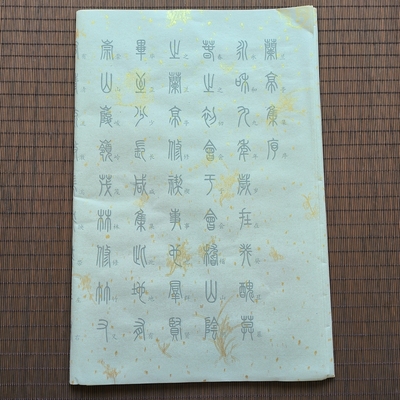 蘭亭集序
永和九年歲在癸醜暮
春之初會于會稽山陰
之蘭亭修禊事也羣賢
畢至少長咸集此地有
崇山峻嶺茂林修竹又